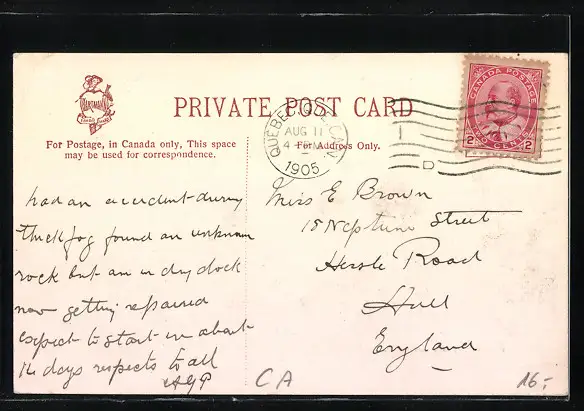 PRIVATE POST CARD
For Postage, in Canada only, This space
may be used for correspondence.
For Address Only.
QUEBEC, QUE. CAN.
AUG 11
4
1905
CANADA POSTAGE
2 TWO CENTS 2
D
had an accident during
thick fog found an unknown
rock but am in dry dock
now getting repaired
expect to start in about
14 days respects to all
Miss E Brown
15 Neptune Street
Hessle Road
Hull
England
CA
16,-